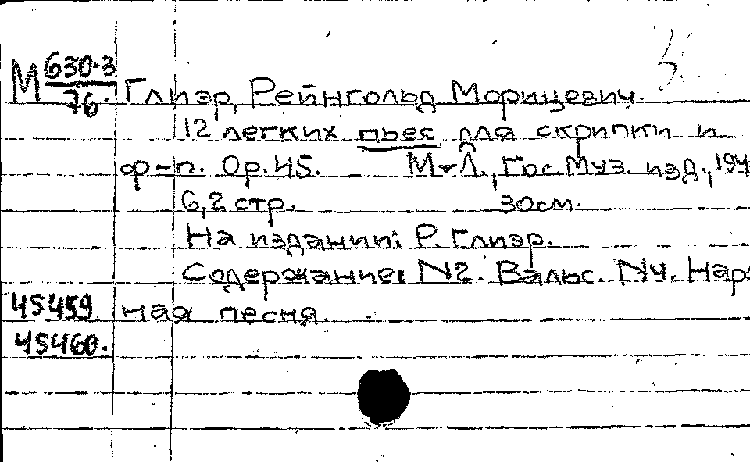 М 630.3
76.
Глиэр, Рейнгольд Морицевич.
12 легких пьес для скрипки и
ф-п. Op. 45. М-Л., Гос. Муз. изд., 194
6,2 стр. 30см.
На издании: Р. Глиэр.
Содержание: N2. Вальс. N4. Нар
45459 ная песня.
45460.